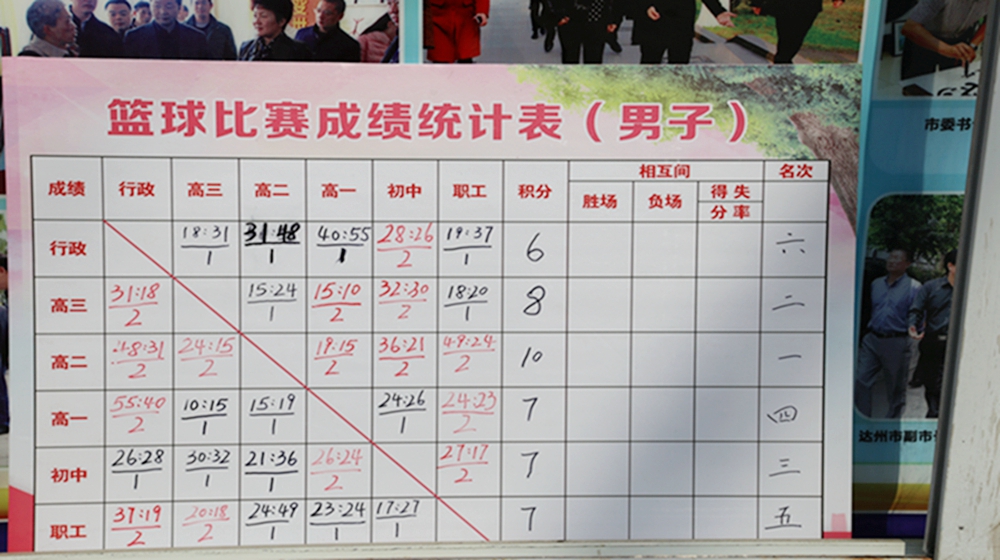 市委书
达州市副市
篮球比赛成绩统计表（男子）
成绩 行政 高三 高二 高一 初中 职工 积分 相互间 名次
胜场 负场 得失分率
行政 18:31 1 31:48 1 40:55 1 28:26 2 19:37 1 6 六
高三 31:18 2 15:24 1 15:10 2 32:30 2 18:20 1 8 二
高二 48:31 2 24:15 2 19:15 2 36:21 2 49:24 2 10 一
高一 55:40 2 10:15 1 15:19 1 24:26 1 24:23 2 7 四
初中 26:28 1 30:32 1 21:36 1 26:24 2 27:17 2 7 三
职工 37:19 2 20:18 2 24:49 1 23:24 1 17:27 1 7 五